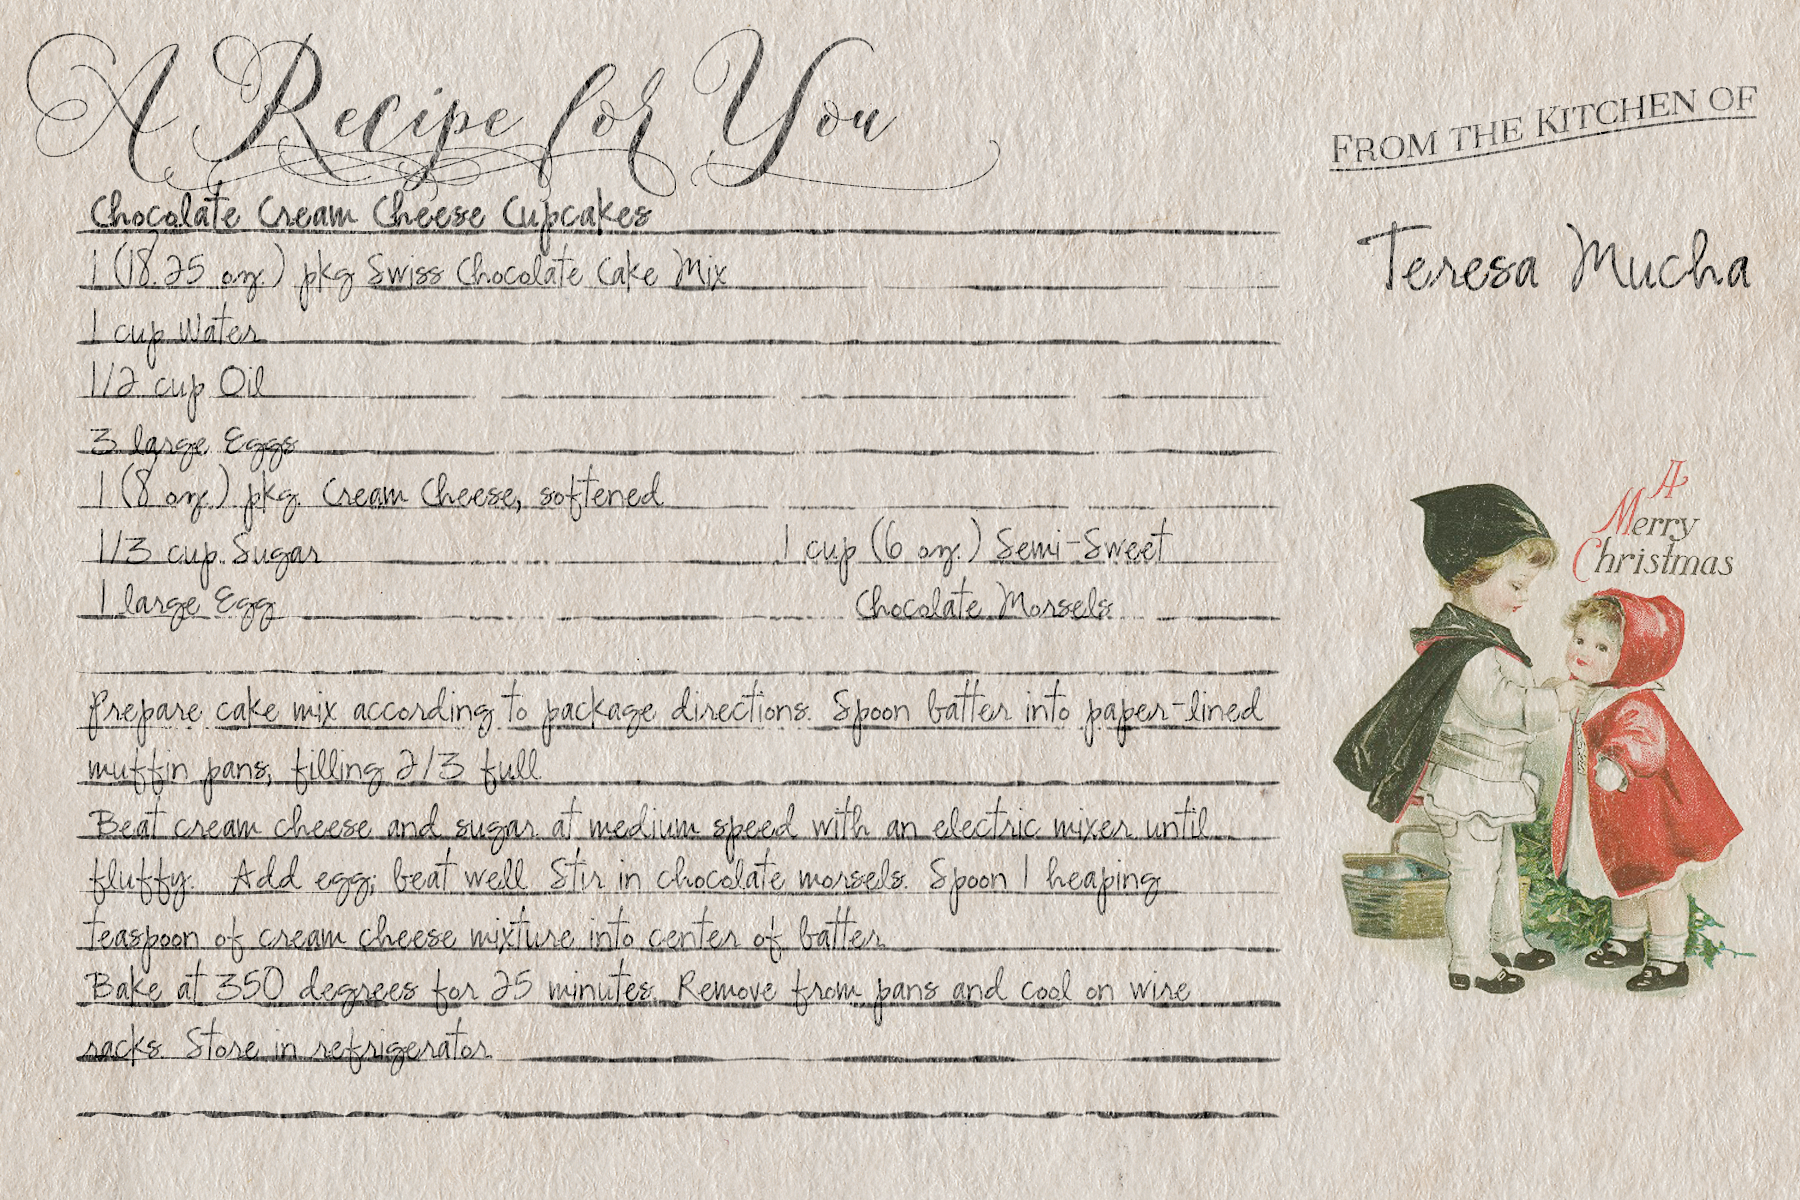 A Recipe for You
From the Kitchen of
Teresa Mucha
Chocolate Cream Cheese Cupcakes
1 (18.25 oz.) pkg Swiss Chocolate Cake Mix
1 cup Water
1/2 cup Oil
3 large Eggs
1 (8 oz.) pkg. Cream Cheese, softened
1/3 cup Sugar
1 large Egg
1 cup (6 oz.) Semi-Sweet
Chocolate Morsels
Prepare cake mix according to package directions. Spoon batter into paper-lined
muffin pans, filling 2/3 full
Beat cream cheese and sugar at medium speed with an electric mixer until
fluffy. Add egg; beat well. Stir in chocolate morsels. Spoon 1 heaping
teaspoon of cream cheese mixture into center of batter.
Bake at 350 degrees for 25 minutes. Remove from pans and cool on wire
racks. Store in refrigerator.
A
Merry
Christmas